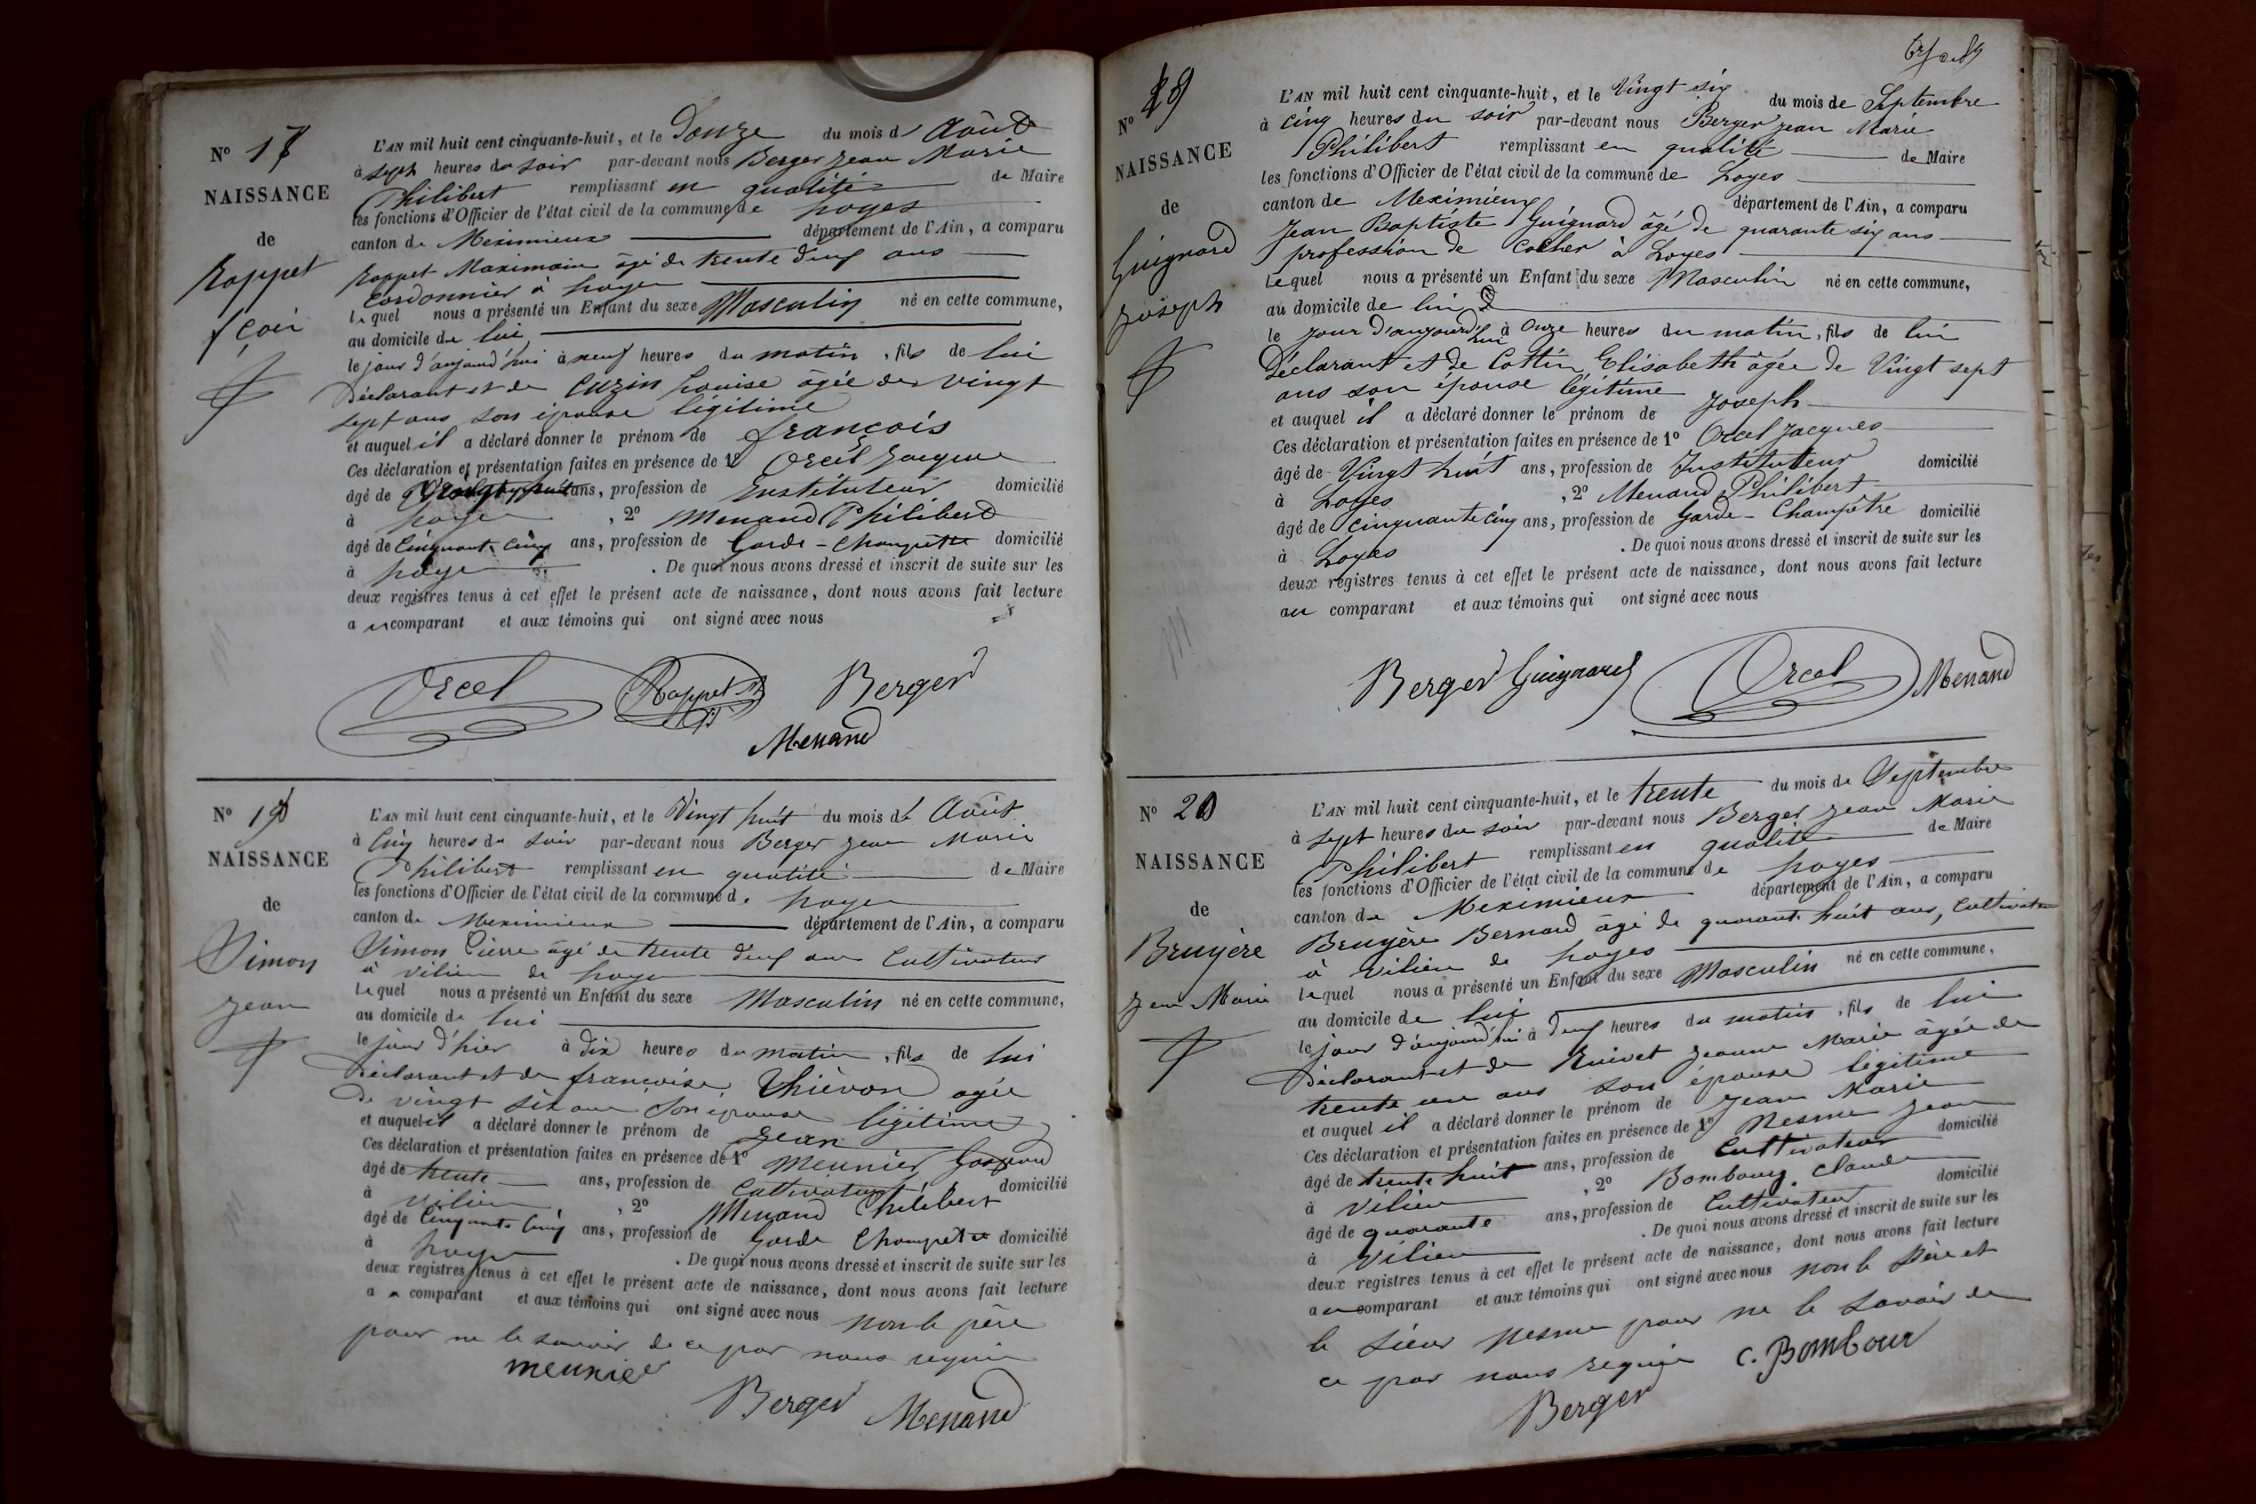 N° 17
NAISSANCE
de
Rappet
fçois
L'AN mil huit cent cinquante-huit, et le Douze du mois d'Août
à sept heures du soir par-devant nous Berger jean Marie
Philibert remplissant en qualité de Maire
les fonctions d'Officier de l'état civil de la commune de Loyes
canton de Meximieux département de l'Ain, a comparu
Rappet Maximain âgé de trente deux ans
Cordonnier à Loyes
lequel nous a présenté un Enfant du sexe Masculin né en cette commune,
au domicile de lui
le jour d'aujourd'hui à neuf heures du matin, fils de lui
Déclarant et de Cuzin Louise âgée de vingt
sept ans son épouse légitime
et auquel il a déclaré donner le prénom de françois
Ces déclaration et présentation faites en présence de 1° Orcel Jacques
âgé de ans, profession de Instituteur domicilié
à Loyes, 2° Menand Philibert
âgé de Cinquante Cinq ans, profession de Garde-Champêtre domicilié
à Loyes. De quoi nous avons dressé et inscrit de suite sur les
deux registres tenus à cet effet le présent acte de naissance, dont nous avons fait lecture
au comparant et aux témoins qui ont signé avec nous
Orcel Rappet Berger
Menand
N°
NAISSANCE
de
Simon
jean
L'AN mil huit cent cinquante-huit, et le Vingt huit du mois d'Août
à Cinq heures du soir par-devant nous Berger jean Marie
Philibert remplissant en qualité de Maire
les fonctions d'Officier de l'état civil de la commune de Loyes
canton de Meximieux département de l'Ain, a comparu
Simon Pierre âgé de trente deux ans Cultivateur
à vilieu de Loyes
lequel nous a présenté un Enfant du sexe Masculin né en cette commune,
au domicile de lui
le jour d'hier à dix heures du matin, fils de lui
Déclarant et de françoise Thiévon agée
de vingt six ans son épouse légitime
et auquel il a déclaré donner le prénom de jean
Ces déclaration et présentation faites en présence de 1° Meunier Gaspard
âgé de trente ans, profession de Cultivateur domicilié
à vilieu, 2° Menand Philibert
âgé de Cinquante Cinq ans, profession de Garde Champêtre domicilié
à Loyes. De quoi nous avons dressé et inscrit de suite sur les
deux registres tenus à cet effet le présent acte de naissance, dont nous avons fait lecture
au comparant et aux témoins qui ont signé avec nous non le père
pour ne le savoir de ce par nous requis
meunier
Berger Menand
N° 19
NAISSANCE
de
Guignard
joseph
L'AN mil huit cent cinquante-huit, et le Vingt six du mois de Septembre
à cinq heures du soir par-devant nous Berger jean Marie
Philibert remplissant en qualité de Maire
les fonctions d'Officier de l'état civil de la commune de Loyes
canton de Meximieux département de l'Ain, a comparu
Jean Baptiste Guignard âgé de quarante six ans
profession de cocher à Loyes
lequel nous a présenté un Enfant du sexe Masculin né en cette commune,
au domicile de lui
le jour d'aujourd'hui à onze heures du matin, fils de lui
Déclarant et de Cottin Elisabeth âgée de Vingt sept
ans son épouse légitime
et auquel il a déclaré donner le prénom de Joseph
Ces déclaration et présentation faites en présence de 1° Orcel Jacques
âgé de Vingt huit ans, profession de Instituteur domicilié
à Loyes, 2° Menand Philibert
âgé de cinquante cinq ans, profession de Garde-Champêtre domicilié
à Loyes. De quoi nous avons dressé et inscrit de suite sur les
deux registres tenus à cet effet le présent acte de naissance, dont nous avons fait lecture
au comparant et aux témoins qui ont signé avec nous
Berger Guignard Orcel Menand
N° 20
NAISSANCE
de
Bruyère
Jean Marie
L'AN mil huit cent cinquante-huit, et le trente du mois de Septembre
à sept heures du soir par-devant nous Berger jean Marie
Philibert remplissant en qualité de Maire
les fonctions d'Officier de l'état civil de la commune de Loyes
canton de Meximieux département de l'Ain, a comparu
Bruyère Bernard âgé de quarante huit ans, Cultivateur
à vilieu de Loyes
lequel nous a présenté un Enfant du sexe Masculin né en cette commune,
au domicile de lui
le jour d'aujourd'hui à deux heures du matin, fils de lui
Déclarant et de Ruivet jeanne Marie âgée de
trente un ans son épouse légitime
et auquel il a déclaré donner le prénom de Jean Marie
Ces déclaration et présentation faites en présence de 1° Nesme jean
âgé de trente huit ans, profession de Cultivateur domicilié
à vilieu, 2° Bombourg Claude
âgé de quarante ans, profession de Cultivateur domicilié
à vilieu. De quoi nous avons dressé et inscrit de suite sur les
deux registres tenus à cet effet le présent acte de naissance, dont nous avons fait lecture
au comparant et aux témoins qui ont signé avec nous non le Père et
le sieur Nesme pour ne le savoir de
ce par nous requis C. Bombour
Berger